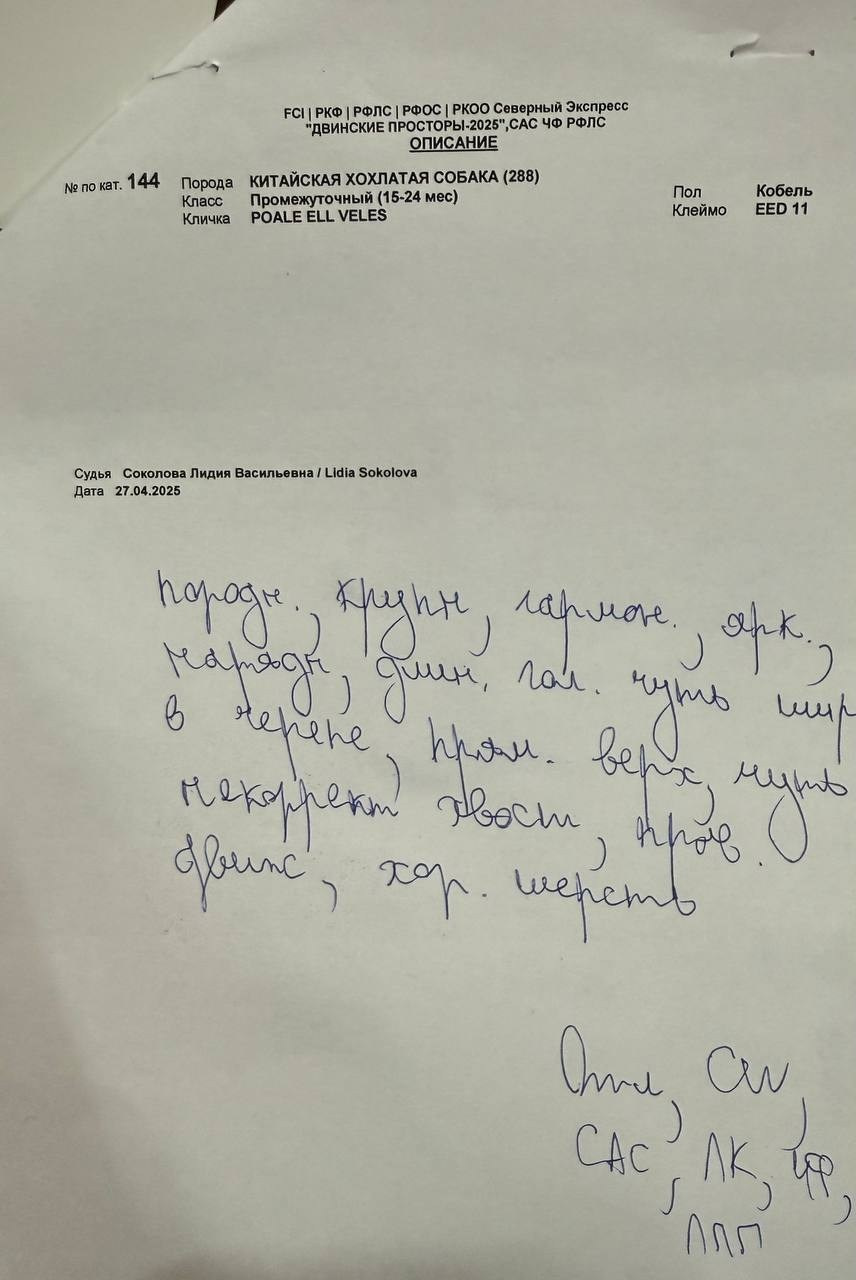 FCI | РКФ | РФЛС | РФОС | РКОО Северный Экспресс
"ДВИНСКИЕ ПРОСТОРЫ-2025",САС ЧФ РФЛС
ОПИСАНИЕ
№ по кат. 144 Порода КИТАЙСКАЯ ХОХЛАТАЯ СОБАКА (288) Пол Кобель
Класс Промежуточный (15-24 мес) Клеймо EED 11
Кличка POALE ELL VELES
Судья Соколова Лидия Васильевна / Lidia Sokolova
Дата 27.04.2025
породн., крупн, гармон., ярк.,
нарядн, длин. гол. чуть шир
в черепе, прям. верх, чуть
некоррект хвост, прав.
движ, хор. шерсть
Отл, CW,
САС, ЛК, ЧФ,
ЛПП